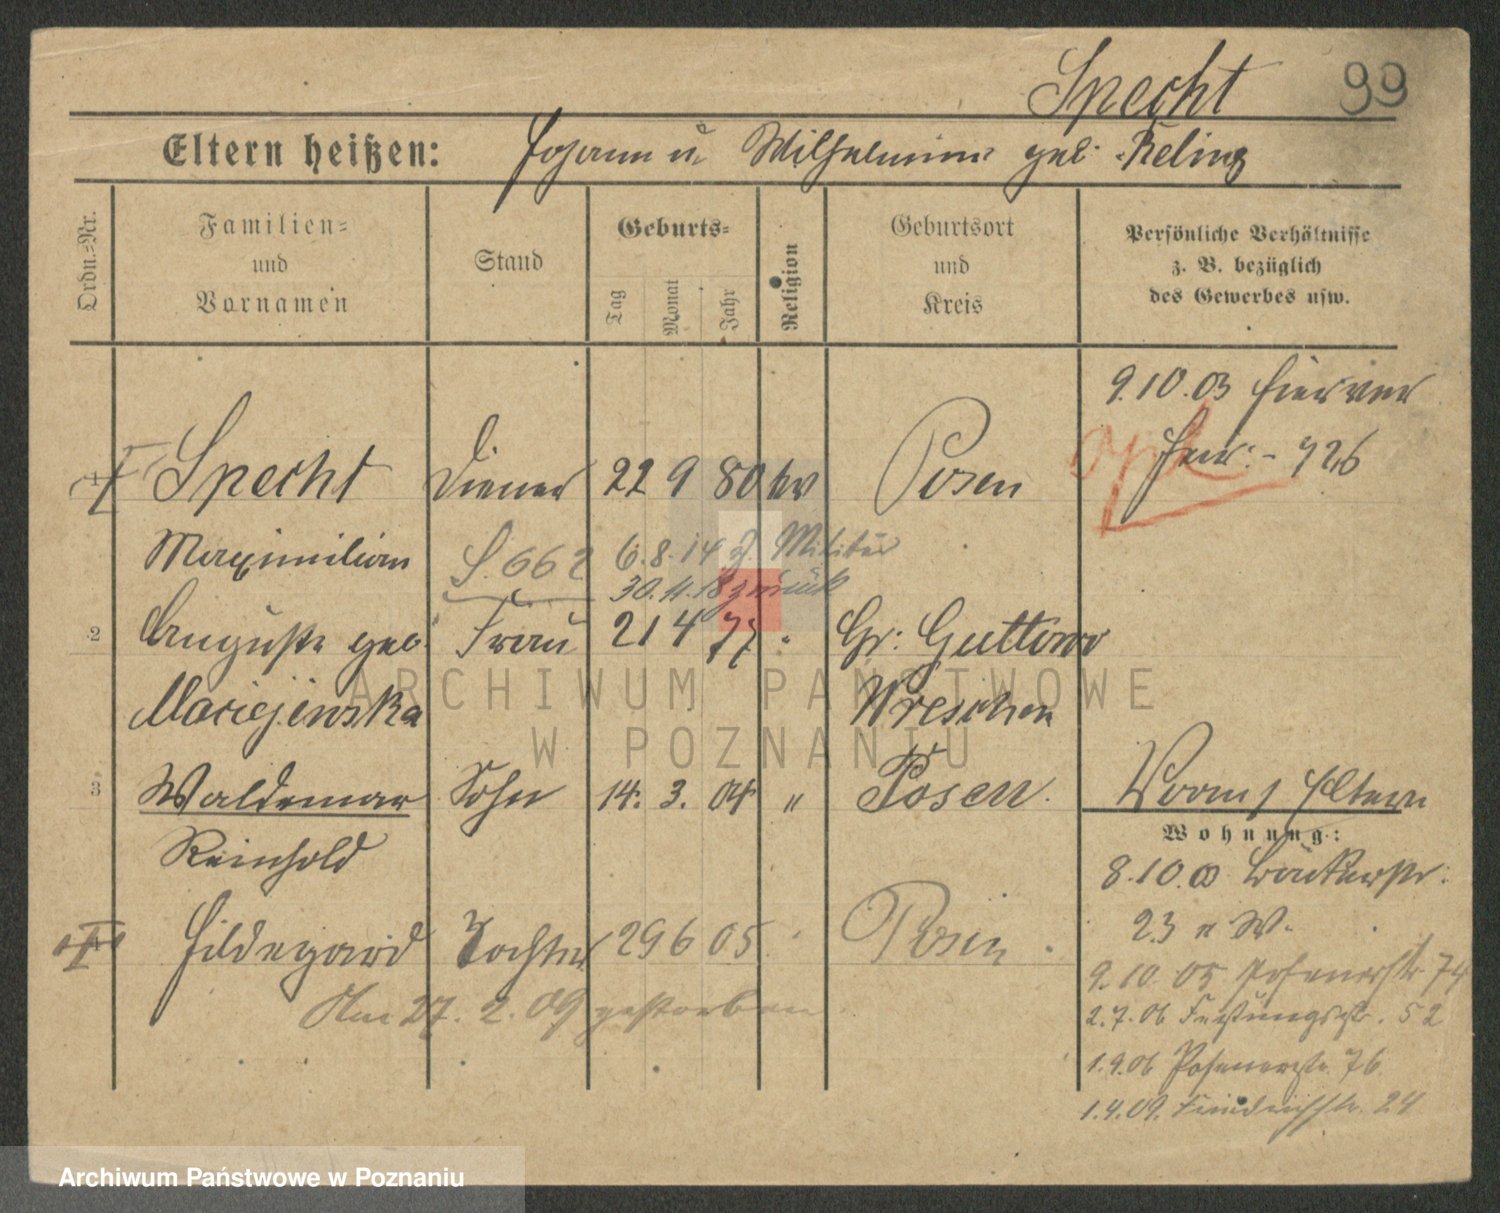 Specht 99
Eltern heißen: Johann u Wilhelmine geb. Reling
Ordn.-Nr.
Familien-
und
Vornamen
Stand
Geburts-
Tag
Monat
Jahr
Religion
Geburtsort
und
Kreis
Persönliche Verhältnisse
z. B. bezüglich
des Gewerbes usw.
9.10.03 hier von
726
1 Specht Diener 22 9 80 ev Posen
Maximilian S. 662 6.8.14 z. Militär
30.11.18 zurück
2 Auguste geb. Frau 21 4 77 " Gr: Guttowo
Maciejewska Wreschen
3 Waldemar Sohn 14. 3. 04 " Posen. Eltern
Reinhold
Wohnung:
8.10.03
23 W.
Hildegard Tochter 29 6 05 Posen
9.10.05 Posenerstr 74
Am 27. 2. 09 gestorben
2.7.06 Festungsstr. 52
1.9.06 Posenerstr. 76
1.4.09. Friedrichstr. 24
ARCHIWUM PAŃSTWOWE
W POZNANIU
Archiwum Państwowe w Poznaniu